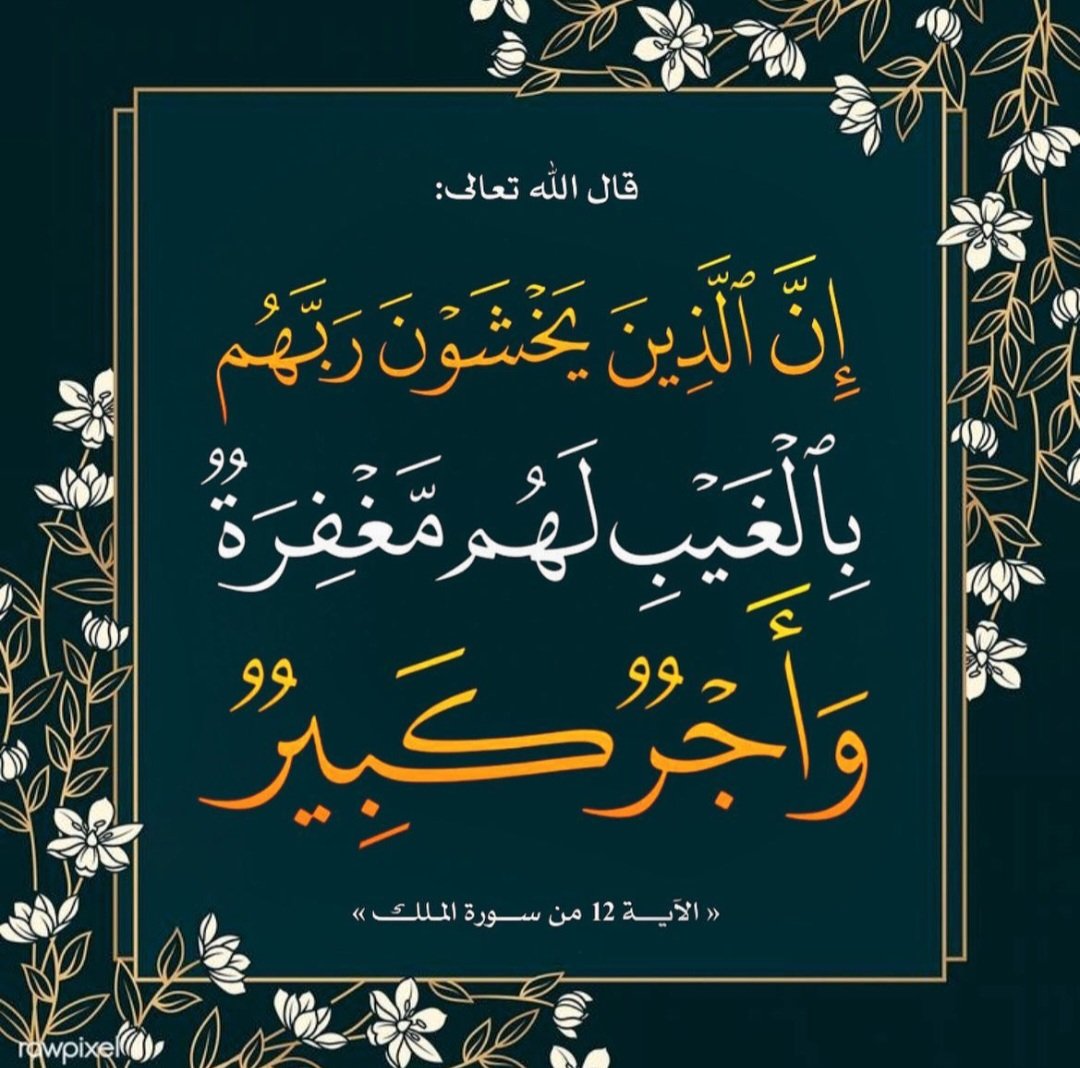 قال الله تعالى:
إِنَّ ٱلَّذِينَ يَخْشَوْنَ رَبَّهُم
بِٱلْغَيْبِ لَهُم مَّغْفِرَةٌ
وَأَجْرٌ كَبِيرٌ
« الآيـة 12 من سـورة الملك »
rawpixel